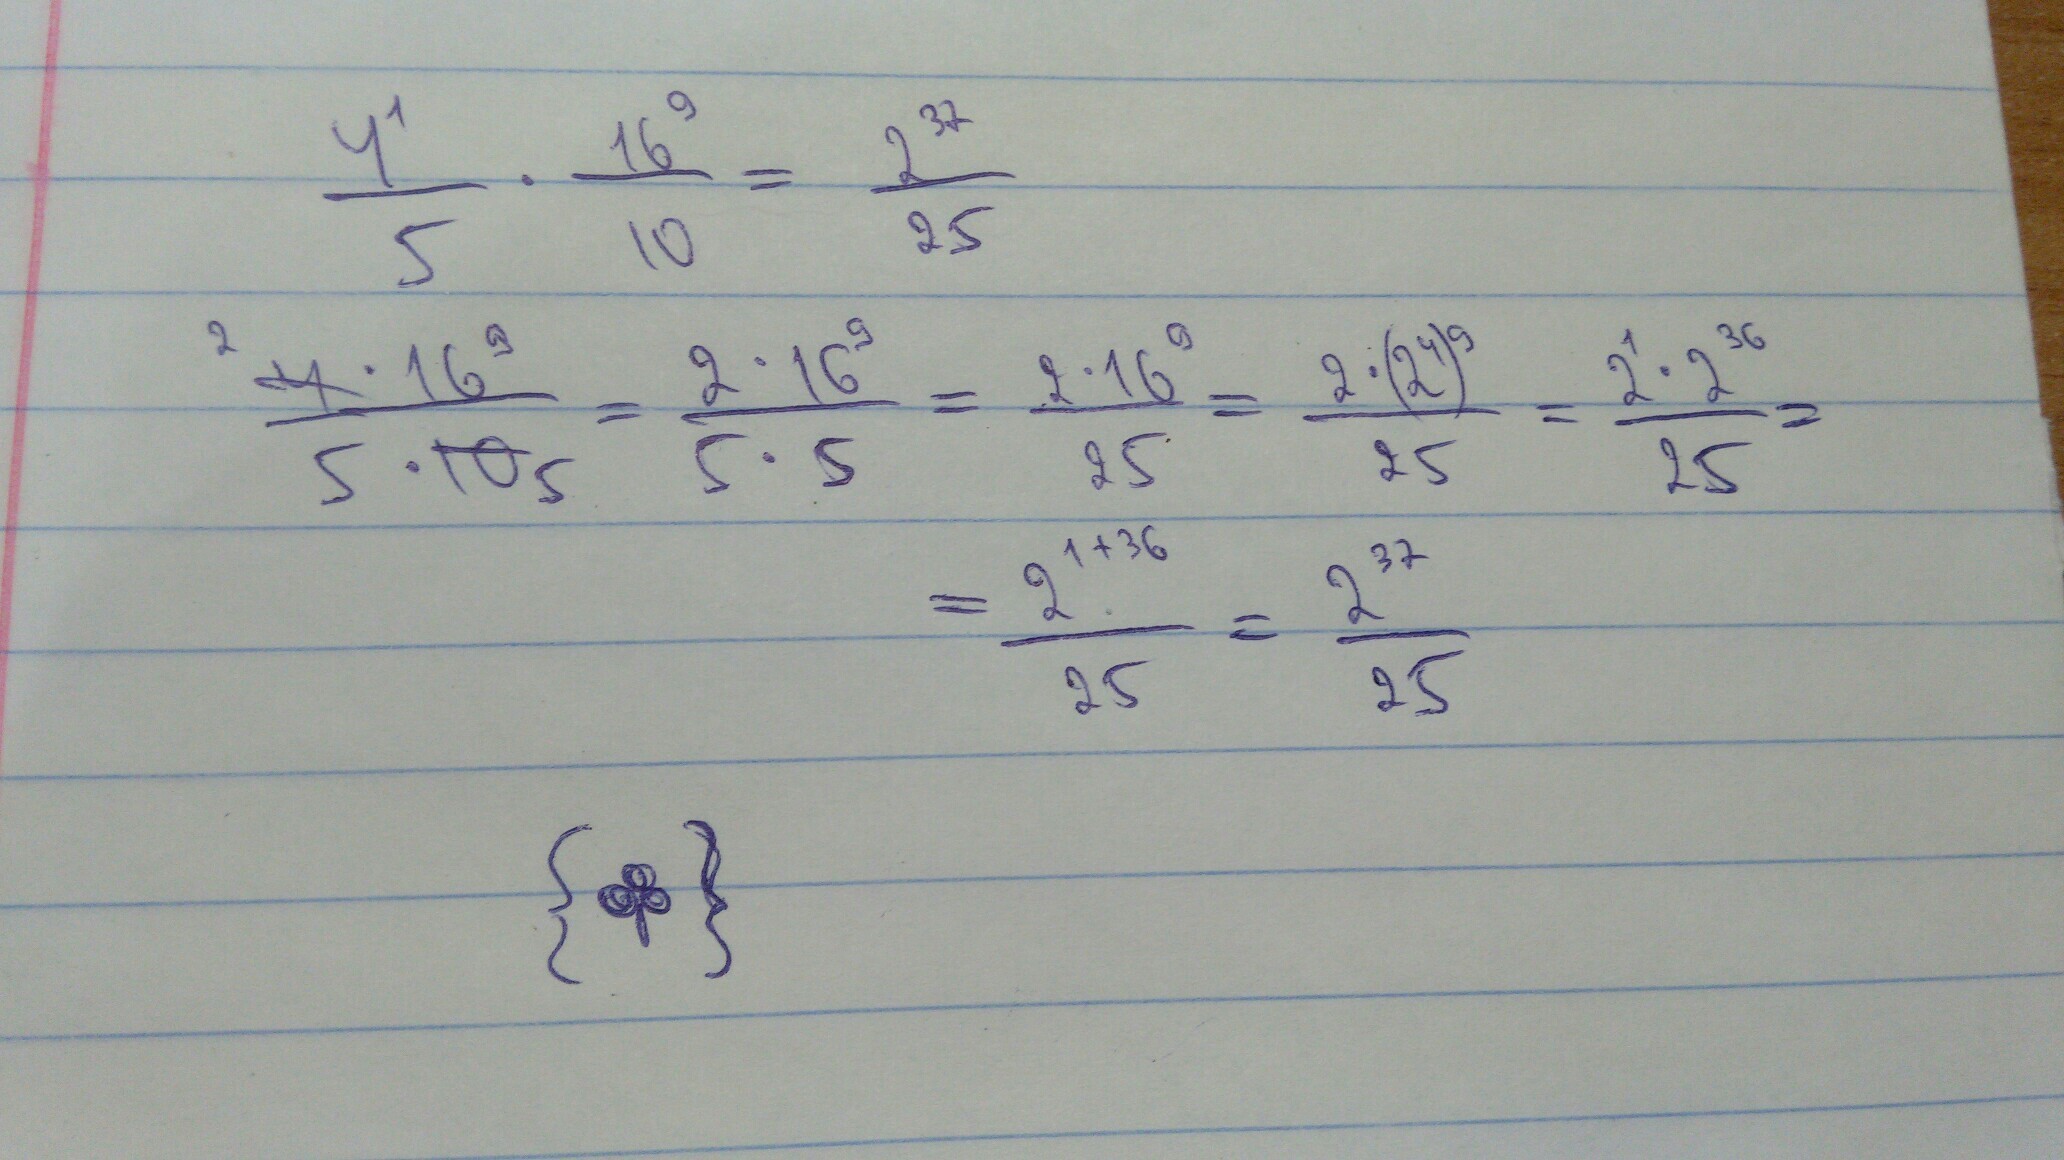 4¹/5 · 16⁹/10 = 2³⁷/25
² 4·16⁹/5·10 5 = 2·16⁹/5·5 = 2·16⁹/25 = 2·(2⁴)⁹/25 = 2¹·2³⁶/25 =
= 2¹⁺³⁶/25 = 2³⁷/25
{♣}